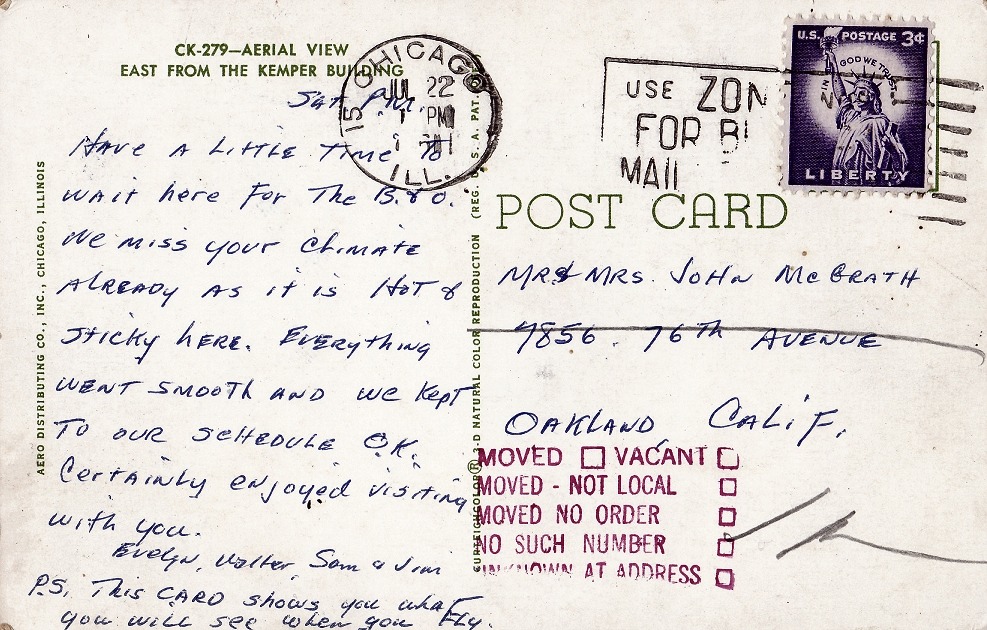 CK-279—AERIAL VIEW
EAST FROM THE KEMPER BUILDING
Sat P.M.
Have a Little Time To
wait here For The B.&O.
We miss your climate
ALREADY AS it is HoT &
sticky here. Everything
went smooth and we kept
To our schedule O.K.
Certainly enjoyed visiting
with you.
Evelyn, Walter, Sam & Jim
P.S. This CARD shows you what
you will see when you Fly.
AERO DISTRIBUTING CO., INC., CHICAGO, ILLINOIS
CURTEICHCOLOR® 3-D NATURAL COLOR REPRODUCTION (REG. U.S.A. PAT.
CHICAGO
15
JUL 22
PM
ILL.
USE ZON
FOR
MAIL
U.S. POSTAGE 3¢
IN GOD WE TRUST
LIBERTY
POST CARD
MR & MRS. JOHN McGRATH
7856 . 76th AVENUE
OAKLAND CALIF.
MOVED □ VACANT □
MOVED - NOT LOCAL □
MOVED NO ORDER □
NO SUCH NUMBER □
UNKNOWN AT ADDRESS □